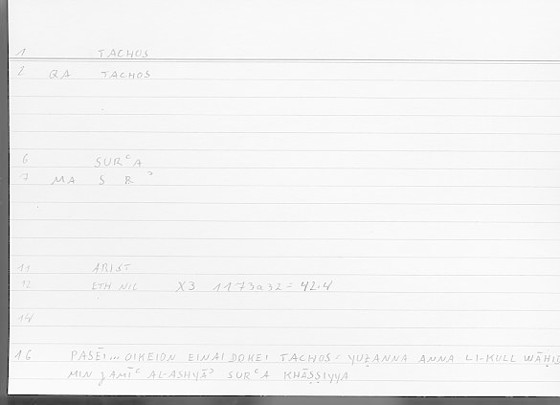 1 TACHOS
2 QA TACHOS
6 SURᶜA
7 MA S R ᵓ
11 ARIST
12 ETH NIC X3 1173a32 = 42.4
14
16 PASĒI... OIKEION EINAI DOKEI TACHOS = YUẒANNA ANNA LI-KULL WĀḤID
MIN ǦAMĪᶜ AL-ASHYĀᵓ SURᶜA KHĀṢṢIYYA